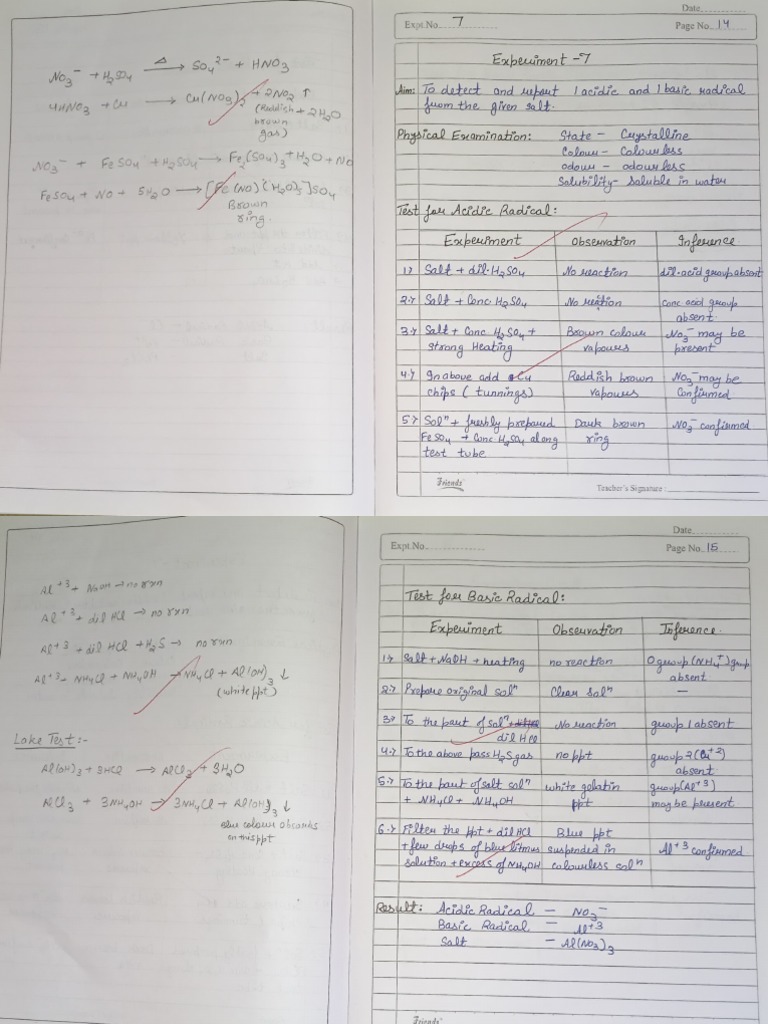 NO3⁻ + H2SO4 —Δ→ SO4²⁻ + HNO3
4HNO3 + Cu → Cu(NO3)2 + 2NO2 ↑ + 2H2O
(Reddish brown gas)
NO3⁻ + FeSO4 + H2SO4 → Fe2(SO4)3 + H2O + NO
FeSO4 + NO + 5H2O → [Fe(NO)(H2O)5]SO4
Brown ring.
Date
Expt.No. 7
Page No. 14
Experiment -7
Aim: To detect and report 1 acidic and 1 basic radical
from the given salt.
Physical Examination: State - Crystalline
Colour - Colourless
odour - odourless
Solubility - Soluble in water
Test for Acidic Radical:
Experiment Observation Inference
1.> Salt + dil. H2SO4 No reaction dil. acid group absent
2.> Salt + Conc. H2SO4 No reation Conc acid group
absent.
3.> Salt + Conc. H2SO4 + Brown colour NO3⁻ may be
strong Heating vapours present
4.> In above add Cu Reddish brown NO3⁻ may be
chips ( tunnings) vapours Confirmed
5.> Solⁿ + freshly prepared Dark brown NO3⁻ confirmed
FeSO4 + Conc H2SO4 along ring
test tube
Friends
Teacher's Signature :
Al⁺³ + NaOH → no rxn
Al⁺³ + dil HCl → no rxn
Al⁺³ + dil HCl + H2S → no rxn
Al⁺³ + NH4Cl + NH4OH → NH4Cl + Al(OH)3 ↓
(white ppt)
Lake Test:-
Al(OH)3 + 3HCl → AlCl3 + 3H2O
AlCl3 + 3NH4OH → 3NH4Cl + Al(OH)3 ↓
Blue colour absorbs
on this ppt
Date
Expt.No.
Page No. 15
Test for Basic Radical:
Experiment Observation Inference.
1.> Salt + NaOH + heating no reaction 0 group (NH4⁺) group
absent
2.> Prepare original solⁿ Clear solⁿ —
3.> To the part of solⁿ + No reaction group 1 absent
dil HCl
4.> To the above pass H2S gas no ppt group 2 (Cu⁺²)
absent
5.> To the part of salt solⁿ white gelatin group (Al⁺³)
+ NH4Cl + NH4OH ppt may be present
6.> Filter the ppt + dil HCl Blue ppt
+ few drops of blue litmus suspended in Al⁺³ confirmed
solution + excess of NH4OH colourless solⁿ
Result: Acidic Radical — NO3⁻
Basic Radical — Al⁺³
Salt — Al(NO3)3
Friends